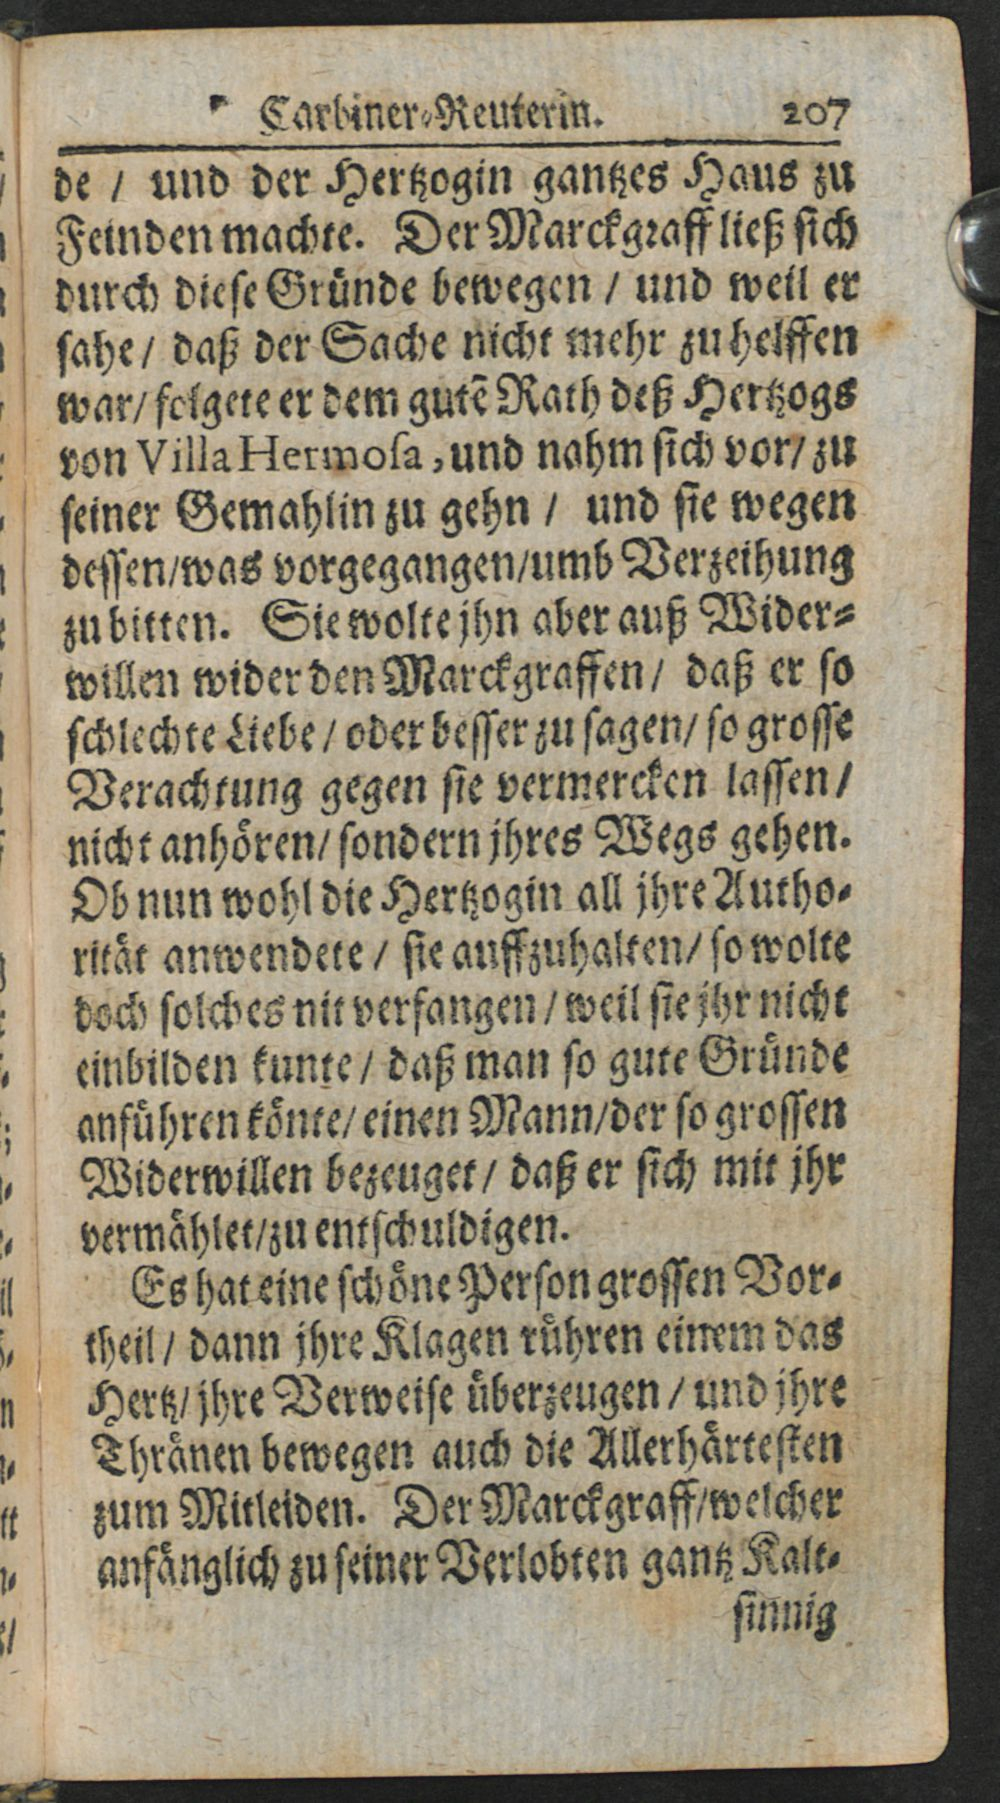 Carbiner-Reuterin. 207
de / und der Hertzogin gantzes Haus zu
Feinden machte. Der Marckgraff ließ sich
durch diese Gründe bewegen / und weil er
sahe / daß der Sache nicht mehr zu helffen
war / folgete er dem gutē Rath deß Hertzogs
von Villa Hermosa, und nahm sich vor / zu
seiner Gemahlin zu gehn / und sie wegen
dessen / was vorgegangen / umb Verzeihung
zu bitten. Sie wolte jhn aber auß Wider-
willen wider den Marckgraffen / daß er so
schlechte Liebe / oder besser zu sagen / so grosse
Verachtung gegen sie vermercken lassen /
nicht anhören / sondern jhres Wegs gehen.
Ob nun wohl die Hertzogin all jhre Autho-
rität anwendete / sie auffzuhalten / so wolte
doch solches nit verfangen / weil sie jhr nicht
einbilden kunte / daß man so gute Gründe
anführen könte / einen Mann / der so grossen
Widerwillen bezeuget / daß er sich mit jhr
vermählet / zu entschuldigen.
Es hat eine schöne Person grossen Vor-
theil / dann jhre Klagen rühren einem das
Hertz / jhre Verweise überzeugen / und jhre
Thränen bewegen auch die Allerhärtesten
zum Mitleiden. Der Marckgraff / welcher
anfänglich zu seiner Verlobten gantz Kalt-
sinnig